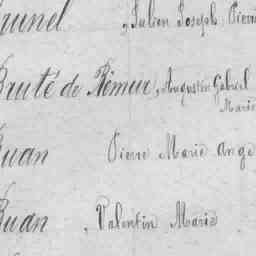 runel , Julien Joseph Pierre
Bruté de Rémur, Augustin Gabriel
Marie
Buan Pierre Marie Ange
Buan , Valentin Marie